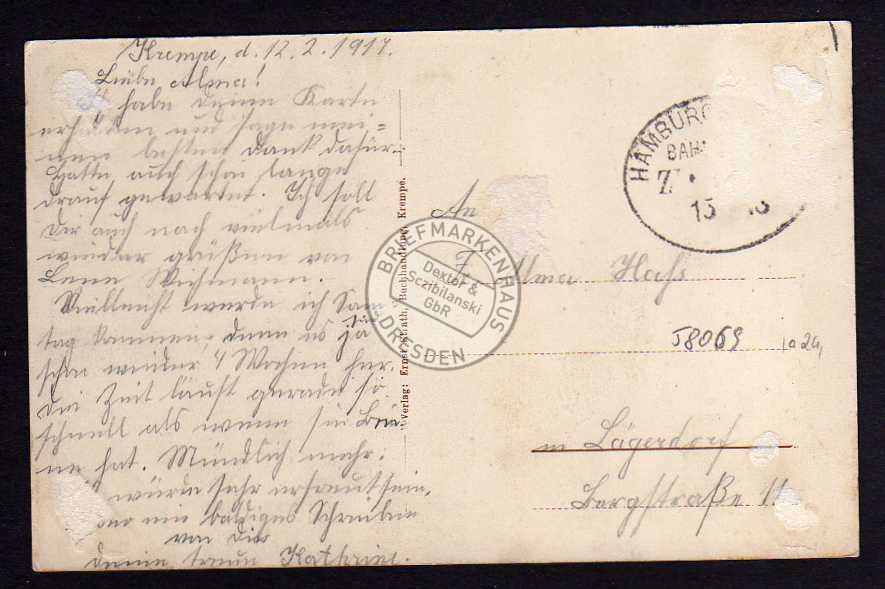 Krempe, d. 12.2.1917.
Liebe Alma!
habe deine Karte
erhalten und sage mei=
nen besten Dank dafür.
Hatte auch schon lange
drauf gewartet. Ich soll
dir auch noch vielmals
wieder grüßen von
Lene Wichmann.
Vielleicht werde ich Sonn=
tag kommen, denn es ja
schon wieder 4 Wochen her.
Die Zeit läuft gerade so
schnell als wenn sie Bei=
ne hat. Mündlich mehr.
würde sehr erfreut sein,
ein baldiges Schreiben
von dir
deine treue Kathrine.
Verlag: Ernst Buchhandlung, Krempe.
An
Alma Hahs
in Lägerdorf
Bergstraße 11
HAMBURG
BAH
Z.
15
58069
BRIEFMARKENHAUS
Dextor &
Sczibilanski
GbR
DRESDEN